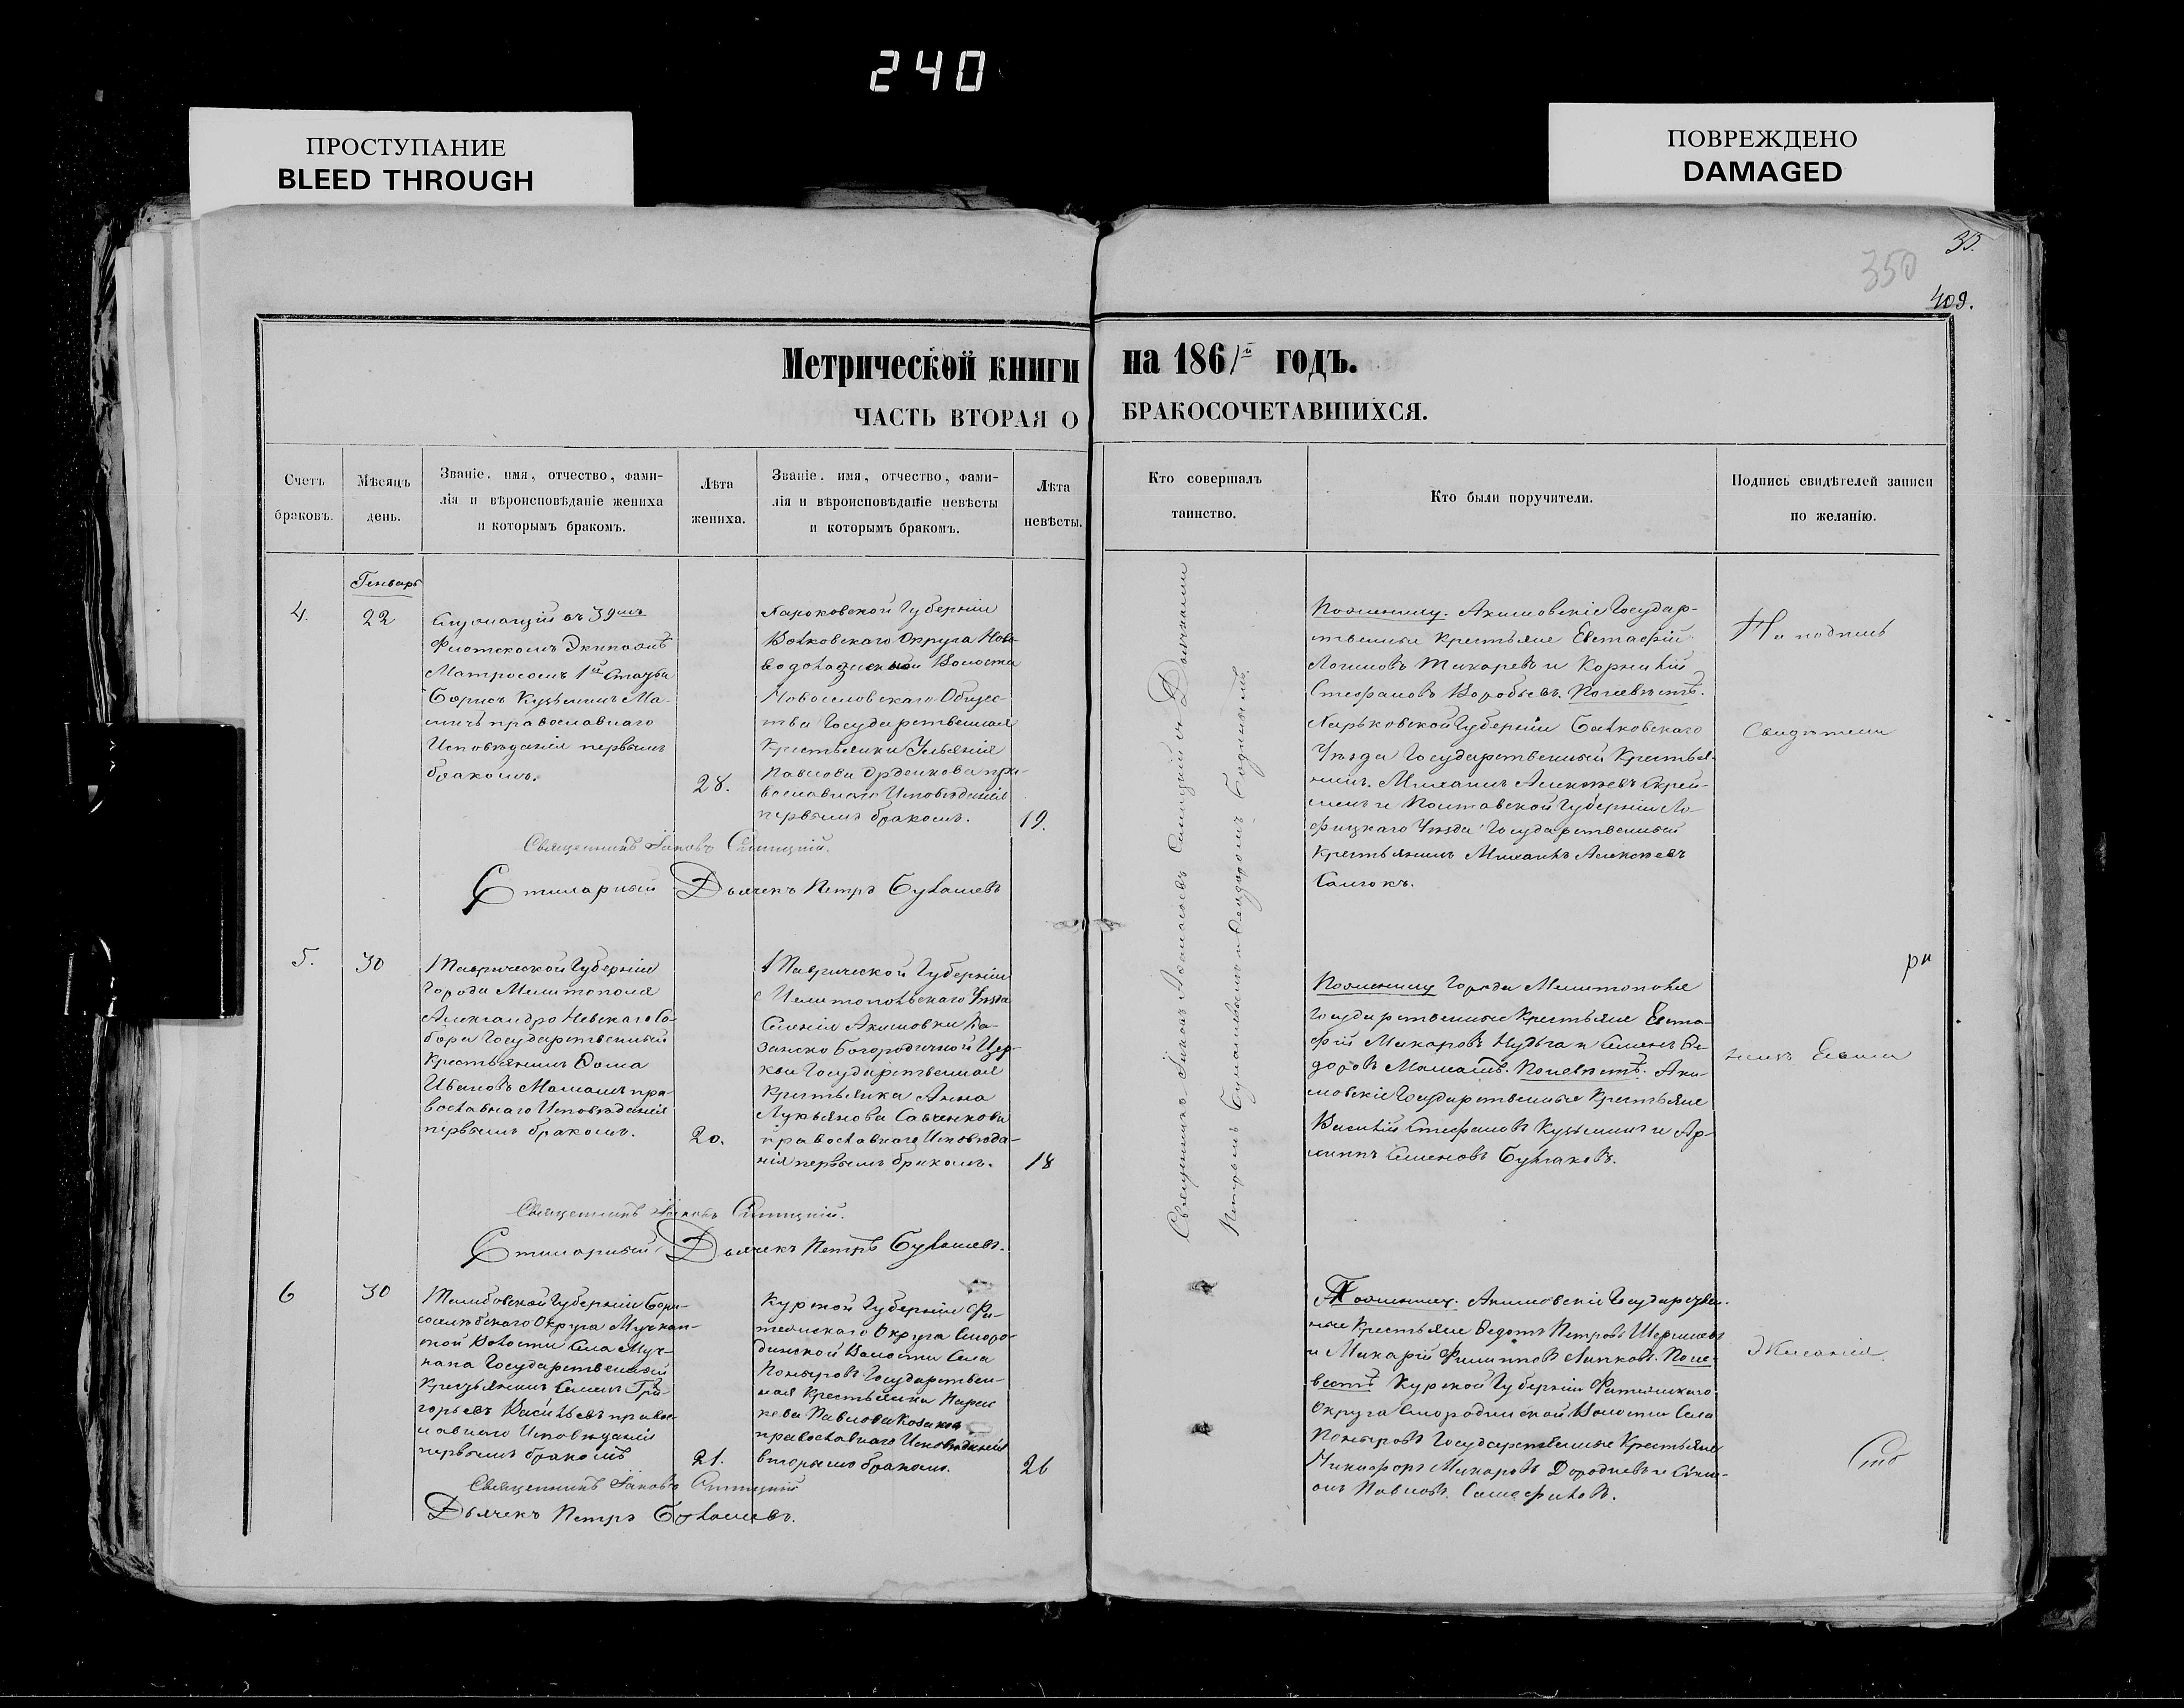 240
ПРОСТУПАНИЕ
BLEED THROUGH
ПОВРЕЖДЕНО
DAMAGED
35.
350
409.
Метрической книги на 1861й годъ.
ЧАСТЬ ВТОРАЯ О БРАКОСОЧЕТАВШИХСЯ.
Счетъ
браковъ.
Мѣсяцъ
день.
Званіе, имя, отчество, фами-
лія и вѣроисповѣданіе жениха
и которымъ бракомъ.
Лѣта
жениха.
Званіе, имя, отчество, фами-
лія и вѣроисповѣданіе невѣсты
и которымъ бракомъ.
Лѣта
невѣсты.
Кто совершалъ
таинство.
Кто были поручители.
Подпись свидѣтелей записи
по желанію.
Генварь
4.
22
Служащій въ 39мъ
Флотскомъ Экипажѣ
Матросомъ 1й Статьи
Борисъ Кузьминъ
православнаго
Исповѣданія первымъ
бракомъ.
28.
Харьковской Губерніи
Волковскаго Округа Ново
водолажской Волости
Новоселовскаго Общес-
тва Государственная
Крестьянка Ульянія
Павлова пра-
вославнаго Исповѣданія
первымъ бракомъ.
19.
Священникъ Іаковъ
Стихарный Дьячекъ Петръ
Священникъ Іаковъ
Петромъ
По жениху. Акимовскіе Государ-
ственные Крестьяне Евстафій
Логиновъ Токаревъ и Корнилій
Стефановъ Воробьевъ. По невѣстѣ.
Харьковской Губерніи
Уѣзда Государственный Крестья-
нинъ Михаилъ Алексѣевъ
и Полтавской Губерніи Ло-
фицкаго Уѣзда Государственный
Крестьянинъ Михаилъ Алексѣевъ
подпись
Свидѣтели
5.
30
Таврической Губерніи
Города Мелитополя
Александро Невскаго Со-
бора Государственный
Крестьянинъ Фома
Ивановъ пра-
вославнаго Исповѣданія
первымъ бракомъ.
20.
Таврической Губерніи
Мелитопольскаго Уѣзда
Селенія Акимовки Ка-
занско Богородичной Цер-
кви Государственная
Крестьянка Анна
Лукьянова Савченкова
православнаго Исповѣда-
нія первымъ бракомъ.
18
Священникъ Іаковъ
Стихарный Дьячекъ Петръ
По жениху Города Мелитополя
Государственные Крестьяне Евста-
фій Макаровъ и Семенъ Фе-
доровъ По невѣстѣ. Аки-
мовскіе Государственные Крестьяне
Василій Стефановъ Кузьминъ и Ар-
хиппъ Семеновъ Булгаковъ.
ри
6
30
Тамбовской Губерніи Бори-
соглѣбскаго Округа Мучкап-
ской Волости Села Муч-
капа Государственный
Крестьянинъ Семенъ Гри-
горьевъ Васильевъ правос-
лавнаго Исповѣданія
первымъ бракомъ
21.
Курской Губерніи Фа-
тежскаго Округа Сморо-
динской Волости Села
Поныровъ Государствен-
ная Крестьянка Парас
кева Павлова
православнаго Исповѣданія
вторымъ бракомъ.
26
Священникъ Іаковъ
Дьячекъ Петръ
По жениху. Акимовскіе Государствен-
ные Крестьяне Федотъ Петровъ
и Макарій Филипповъ Липковъ. По не-
вестѣ Курской Губерніи Фатежскаго
Округа Смородинской Волости Села
Поныровъ Государственные Крестьяне
Никифоръ Макаровъ и
Павловъ
Желанія.